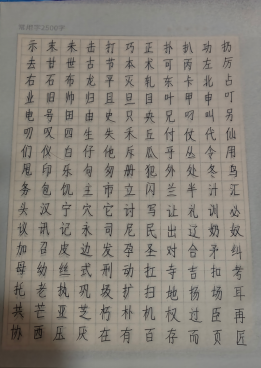 常用字2500字
示末未击打巧正扑扒功扔
去甘世古节本术可丙左厉
右石布龙平灭轧东卡北占
业旧帅归且旦目叶甲申叮
电号田由史只央兄叼叫另
叨叹四生失禾丘付仗代仙
们仪白仔他斥瓜乎丛令用
甩印乐句匆册犯外处冬鸟
务包饥主市立闪兰半汁汇
头汉宁穴它讨写让礼训必
议讯记永司尼民出辽奶奴
加召皮边发孕圣对台矛纠
母幼丝式刑动扛寺吉扣考
托老执巩圾扩扫地扬场耳
共芒亚芝朽朴机权过臣再
协西压厌在有百存而页匠